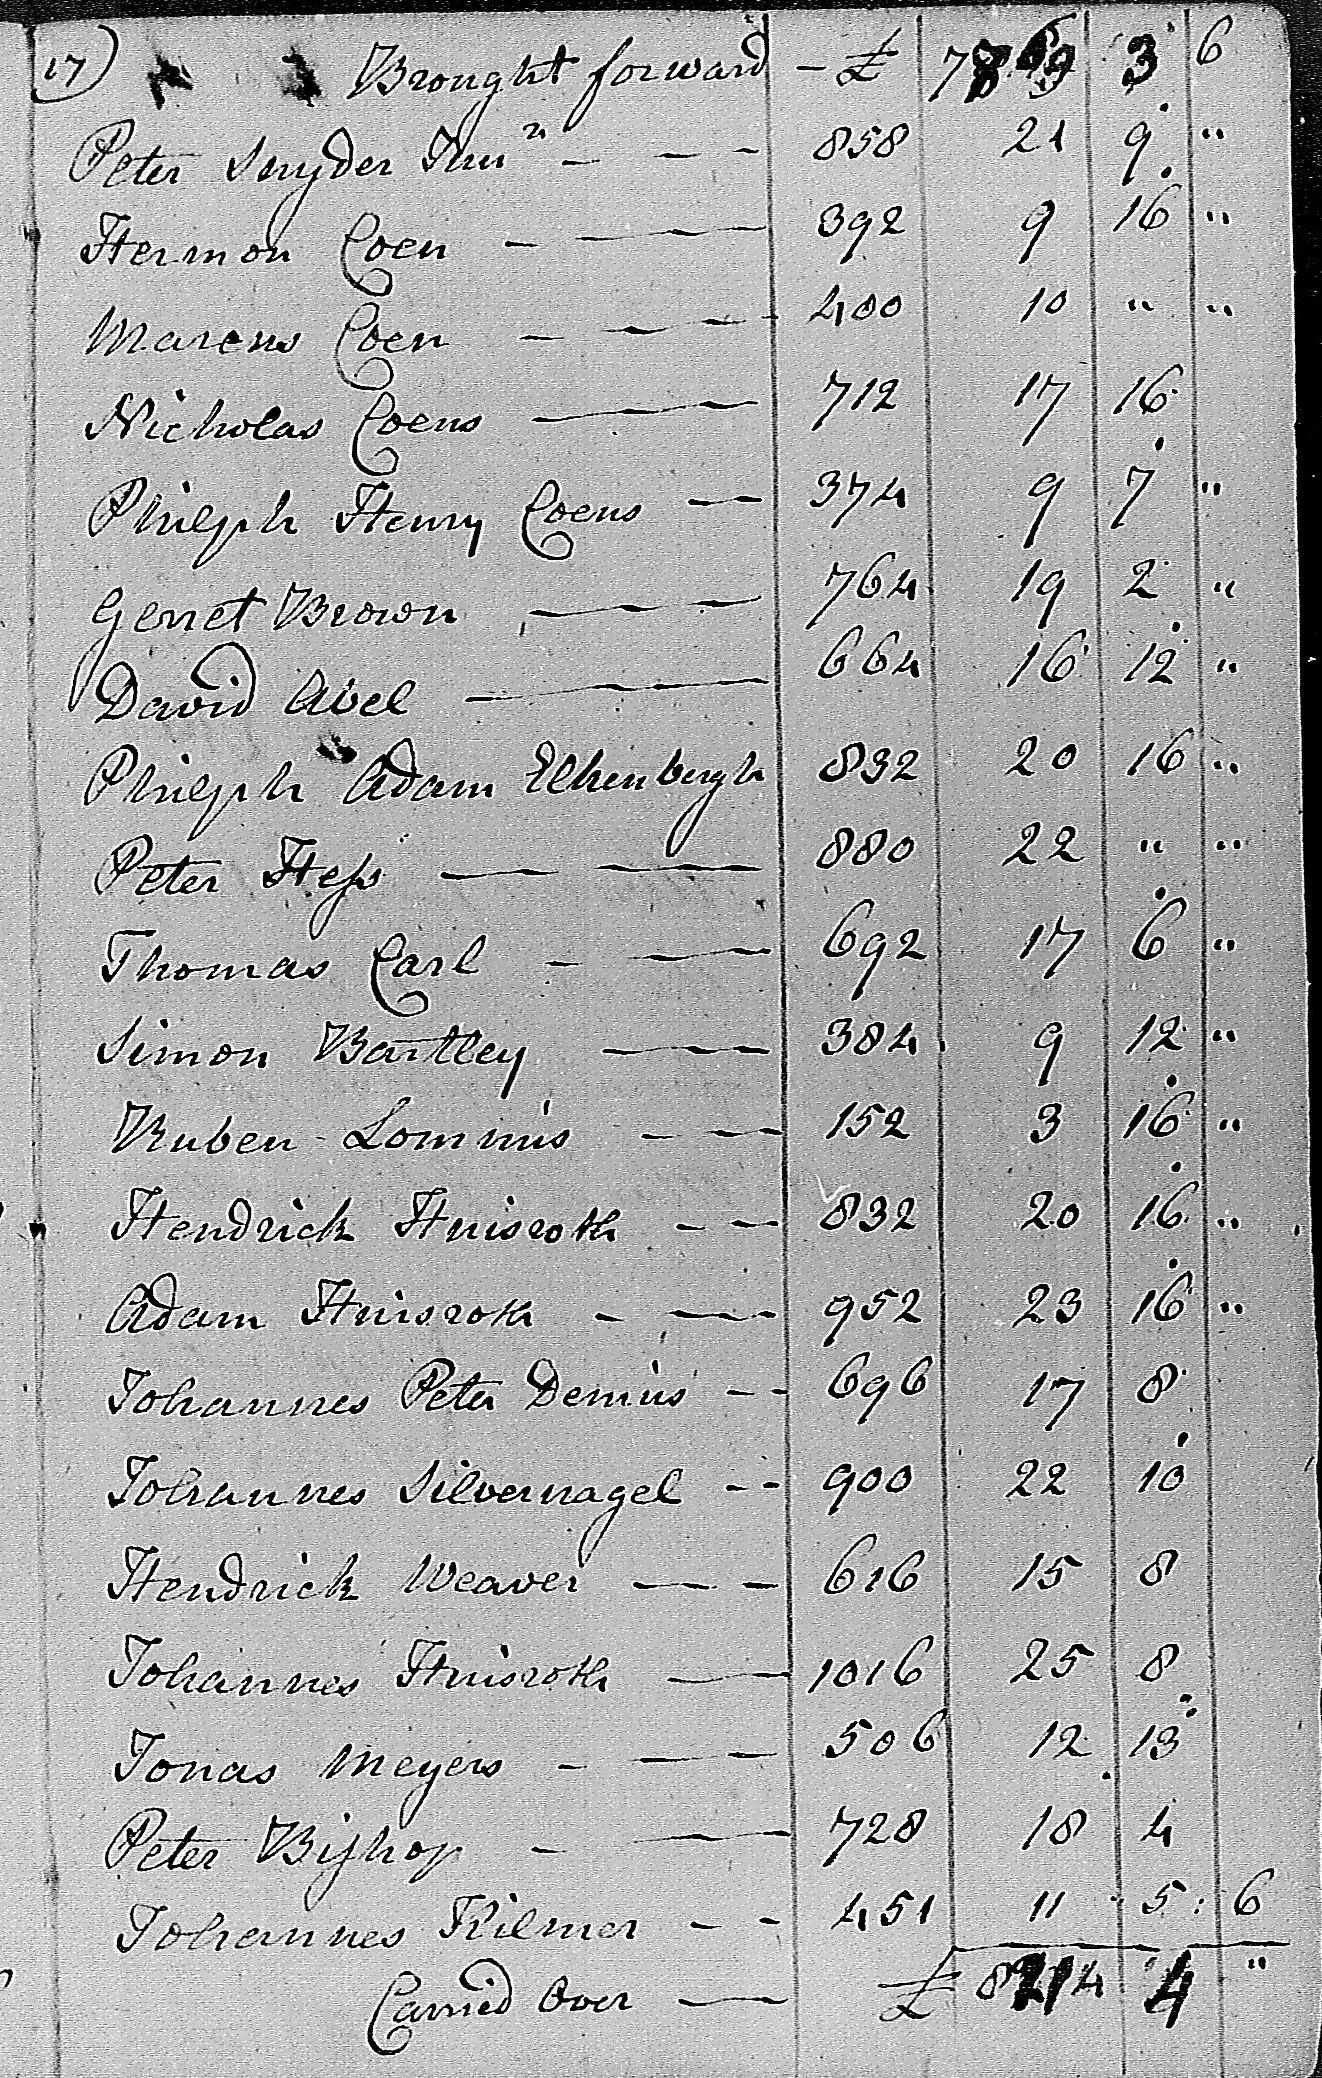 17) Brought forward - £ 7869 3 6
Peter Snyder Jun<sup>r</sup> - - - 858 21 9 "
Hermon Coen - — — 392 9 16 "
Marcus Coen - — — 400 10 " "
Nicholas Coens — — — 712 17 16
Philiph Henry Coens — — 374 9 7 "
Gerret Brown — — — 764 19 2 "
David Abel — — — 664 16 12 "
Philiph Adam Elkenbergh 832 20 16 "
Peter Hess — — — 880 22 " "
Thomas Carl - — — 692 17 6 "
Simon Bartley — — — 384 9 12 "
Ruben Lommis — — — 152 3 16 "
Hendrick Huisroth - — 832 20 16 "
Adam Huisroth - — — 952 23 16 "
Johannes Peter Demus - - 696 17 8
Johannes Silvernagel - - 900 22 10
Hendrick Weaver — - — 616 15 8
Johannes Huisroth — — 1016 25 8
Jonas Meyers - — — 506 12 13
Peter Bishop - — — 728 18 4
Johannes Kilmer - - 451 11 : 5 : 6
Carried Over — — £ 8214 4 "